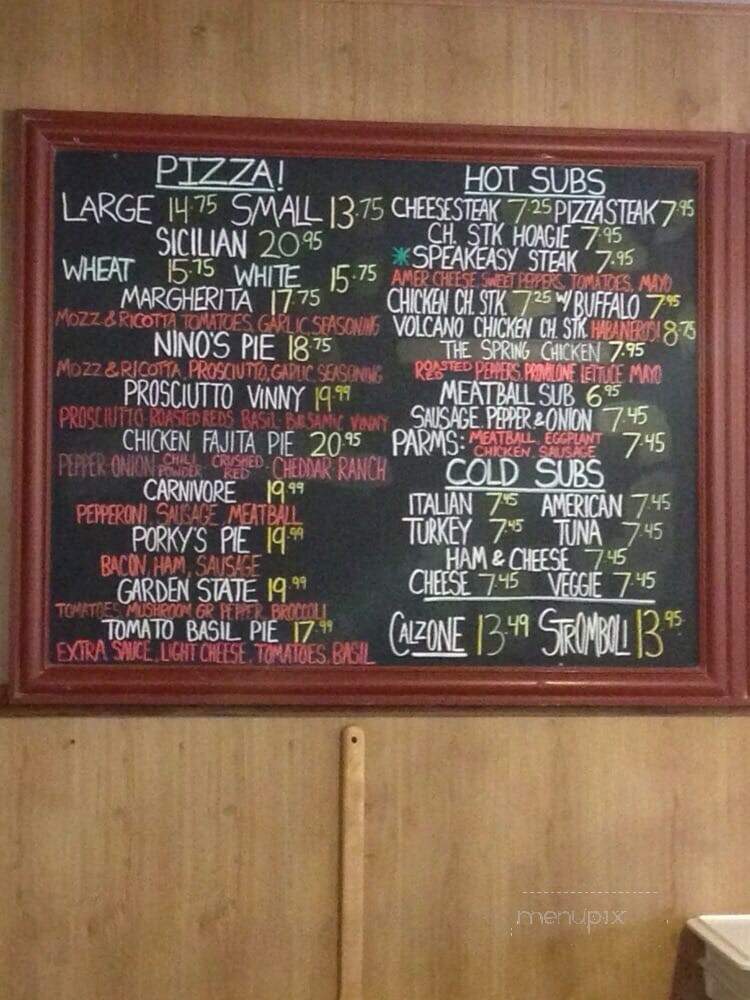 PIZZA!
LARGE 14.75 SMALL 13.75
SICILIAN 20.95
WHEAT 15.75 WHITE 15.75
MARGHERITA 17.75
MOZZ & RICOTTA, TOMATOES, GARLIC, SEASONING
NINO'S PIE 18.75
MOZZ & RICOTTA, PROSCIUTTO, GARLIC, SEASONING
PROSCIUTTO VINNY 19.99
PROSCIUTTO ROASTED REDS BASIL BALSAMIC VINNY
CHICKEN FAJITA PIE 20.95
PEPPER·ONION CHILI POWDER CRUSHED RED CHEDDAR RANCH
CARNIVORE 19.99
PEPPERONI, SAUSAGE, MEATBALL
PORKY'S PIE 19.99
BACON, HAM, SAUSAGE
GARDEN STATE 19.99
TOMATOES, MUSHROOM GR PEPPER, BROCCOLI
TOMATO BASIL PIE 17.99
EXTRA SAUCE, LIGHT CHEESE, TOMATOES, BASIL
HOT SUBS
CHEESESTEAK 7.25 PIZZA STEAK 7.95
CH. STK HOAGIE 7.95
*SPEAKEASY STEAK 7.95
AMER CHEESE, SWEET PEPPERS, TOMATOES, MAYO
CHICKEN CH. STK 7.25 W/ BUFFALO 7.95
VOLCANO CHICKEN CH. STK HABANEROS! 8.75
THE SPRING CHICKEN 7.95
ROASTED RED PEPPERS, PROVOLONE, LETTUCE, MAYO
MEATBALL SUB 6.95
SAUSAGE, PEPPER & ONION 7.45
PARMS: MEATBALL, EGGPLANT CHICKEN, SAUSAGE 7.45
COLD SUBS
ITALIAN 7.45 AMERICAN 7.45
TURKEY 7.45 TUNA 7.45
HAM & CHEESE 7.45
CHEESE 7.45 VEGGIE 7.45
CALZONE 13.49 STROMBOLI 13.95
menupix